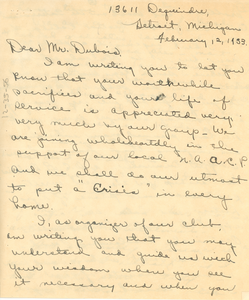 13611 Dequindre,
Detroit, Michigan
February 12, 1933.
Dear Mr. Dubois,
I am writing you to let you
know that your worthwhile
sacrifices and your life of
service is appreciated very
very much by our group. We
are joining wholeheartedly in the
support of our local N.A.A.C.P
and we shall do our utmost
to put a "Crisis" in every
home.
I, as organizer of our club,
am writing you that you may
understand and guide us with
your wisdom when you see
it necessary and when you